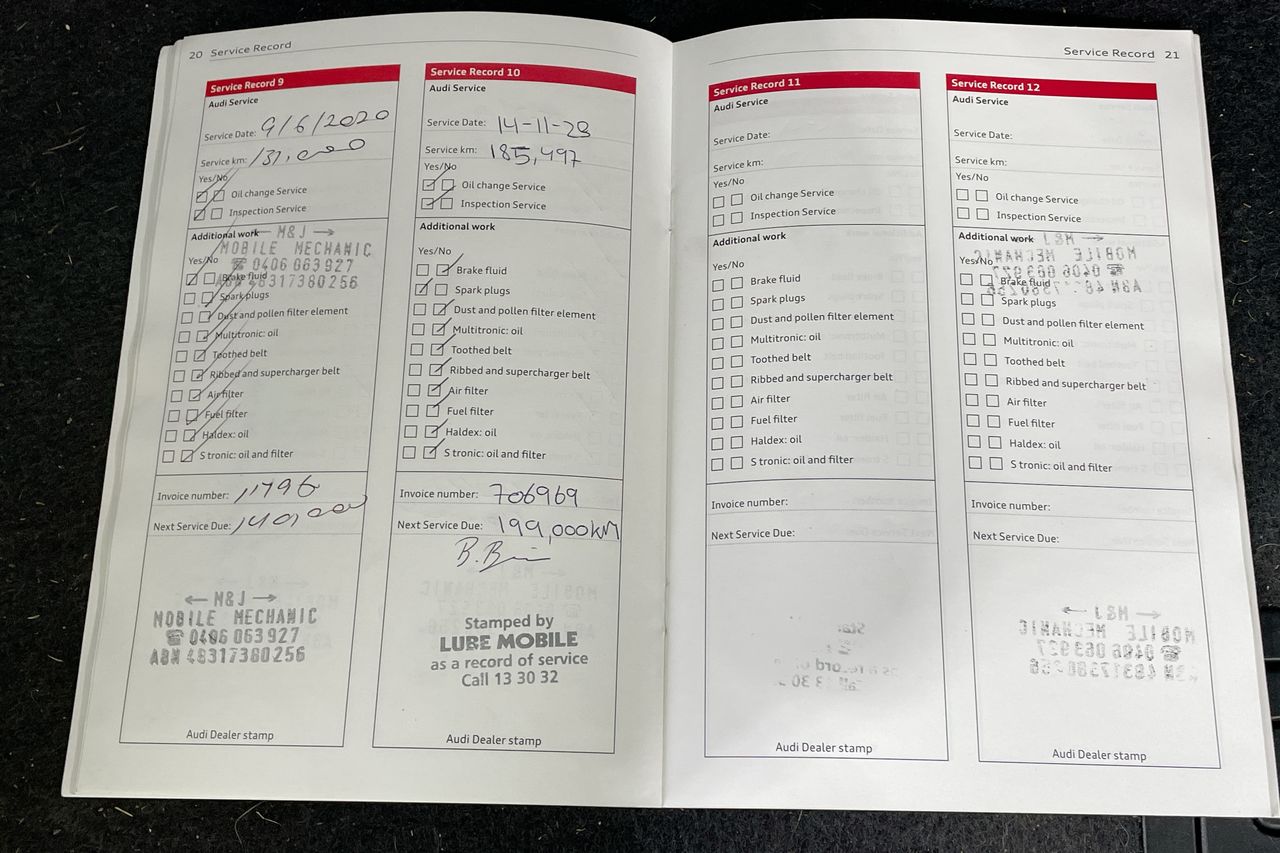 20 Service Record
Service Record 9
Audi Service
Service Date: 9/6/2020
Service km: 131,000
Yes/No
Oil change Service
Inspection Service
Additional work
← M&J →
MOBILE MECHANIC
☎ 0406 063 927
ABN 48317380256
Yes/No
Brake fluid
Spark plugs
Dust and pollen filter element
Multitronic: oil
Toothed belt
Ribbed and supercharger belt
Air filter
Fuel filter
Haldex: oil
S tronic: oil and filter
Invoice number: 11796
Next Service Due: 140,000
← M&J →
MOBILE MECHANIC
☎ 0406 063 927
ABN 48317380256
Audi Dealer stamp
Service Record 10
Audi Service
Service Date: 14-11-23
Service km: 185,497
Yes/No
Oil change Service
Inspection Service
Additional work
Yes/No
Brake fluid
Spark plugs
Dust and pollen filter element
Multitronic: oil
Toothed belt
Ribbed and supercharger belt
Air filter
Fuel filter
Haldex: oil
S tronic: oil and filter
Invoice number: 706969
Next Service Due: 199,000KM
Stamped by
LUBE MOBILE
as a record of service
Call 13 30 32
Audi Dealer stamp
Service Record 21
Service Record 11
Audi Service
Service Date:
Service km:
Yes/No
Oil change Service
Inspection Service
Additional work
Yes/No
Brake fluid
Spark plugs
Dust and pollen filter element
Multitronic: oil
Toothed belt
Ribbed and supercharger belt
Air filter
Fuel filter
Haldex: oil
S tronic: oil and filter
Invoice number:
Next Service Due:
Audi Dealer stamp
Service Record 12
Audi Service
Service Date:
Service km:
Yes/No
Oil change Service
Inspection Service
Additional work
Yes/No
Brake fluid
Spark plugs
Dust and pollen filter element
Multitronic: oil
Toothed belt
Ribbed and supercharger belt
Air filter
Fuel filter
Haldex: oil
S tronic: oil and filter
Invoice number:
Next Service Due:
Audi Dealer stamp